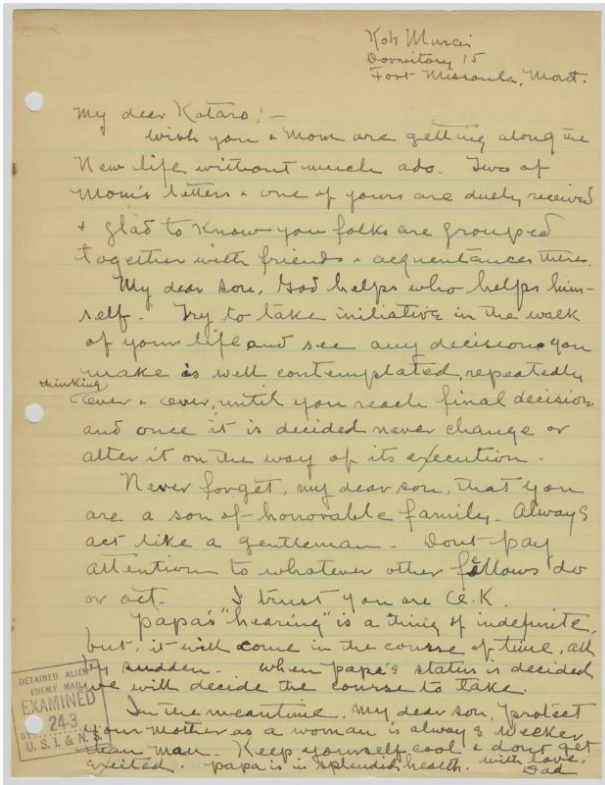 Koh Murai
Dormitory 15
Fort Missoula, Mont.
My dear Kotaro:-
Wish you & Mom are getting along the
New life without much ado. Two of
Mom's letters & one of yours are duely received
& glad to know you folks are grouped
together with friends & acquentances there.
My dear son, God helps who helps him-
self. Try to take initiative in the walk
of your life and see any decisions you
make is well contemplated, repeatedly
thinking
over & over, until you reach final decision
and once it is decided never change or
alter it on the way of its execution.
Never forget, my dear son, that you
are a son of honorable family. Always
act like a gentleman. Dont pay
attention to whatever other fellows do
or act. I trust you are O.K.
Papa's "hearing" is a thing of indefinite,
but, it will come in the course of time, all
by sudden. When papa's status is decided
we will decide the course to take.
In the meantime, my dear son, protect
your mother as a woman is always weeker
than man. Keep yourself cool & dont get
excited. Papa is in splendid health. With love,
Dad
DETAINED ALIEN
ENEMY MAIL
EXAMINED
BY 243
U. S. I. & N. S.